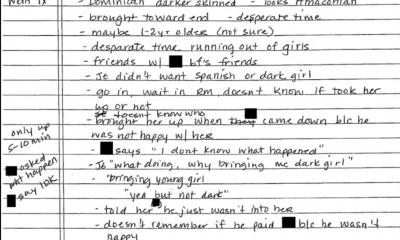 - Dominican darker skinned - looks Amaconian
- brought toward end - desperate time
- maybe 1-2yr older (not sure)
- desperate time running out of girls
- friends w/ bf's friends
- JE didn't want Spanish or dark girl
- go in, wait in Rm, doesn't know if took her
up or not
- JE doesn't know who
- brought her up when they came down b/c he
was not happy w/ her
only up
5-10 min
- says "I dont know what happened"
asked
wht happen
say IDK
- JE "what doing, why bringing me dark girl"
- "bringing young girl
"yea but not dark"
- told her he just wasn't into her
- doesn't remember if he paid b/c he wasn't
happy